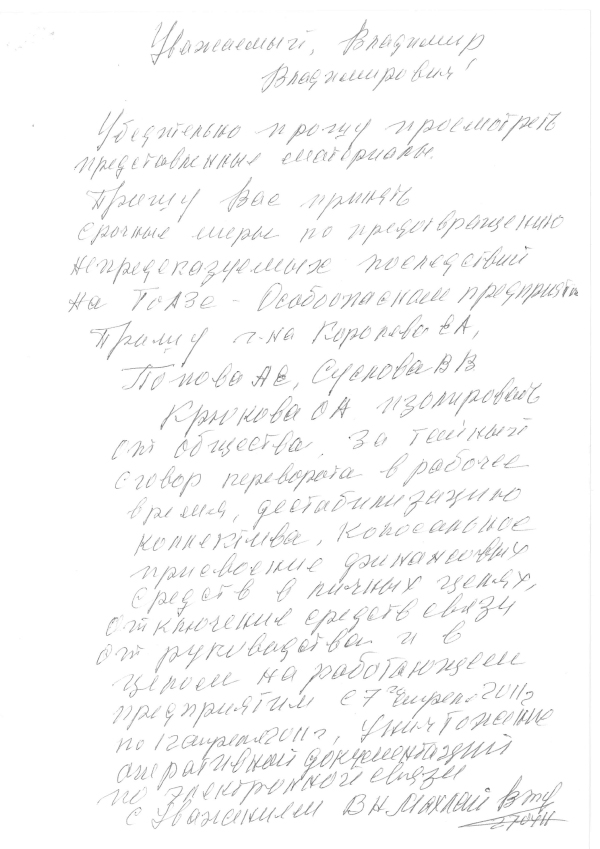 Уважаемый, Владимир
Владимирович!
Убедительно прошу просмотреть
представленные материалы.
Прошу Вас принять
срочные меры по предотвращению
непредсказуемых последствий
на ТоАЗе - Особоопасном предприятии
Прошу г-на Королева ЕА,
Попова АС, Суслова ВВ
Крюкова ОА изолировать
от общества. За тайный
сговор переворота в рабочее
время, дестабилизацию
коллектива, Колосальное
присвоение финансовых
средств в личных целях,
отключение средств связи
от руководства и в
целом на работающем
предприятии с 7 апреля 2011г
по 12 апреля 2011г, Уничтожение
оперативной документации
по электронной связи
с Уважением В Н Махлай